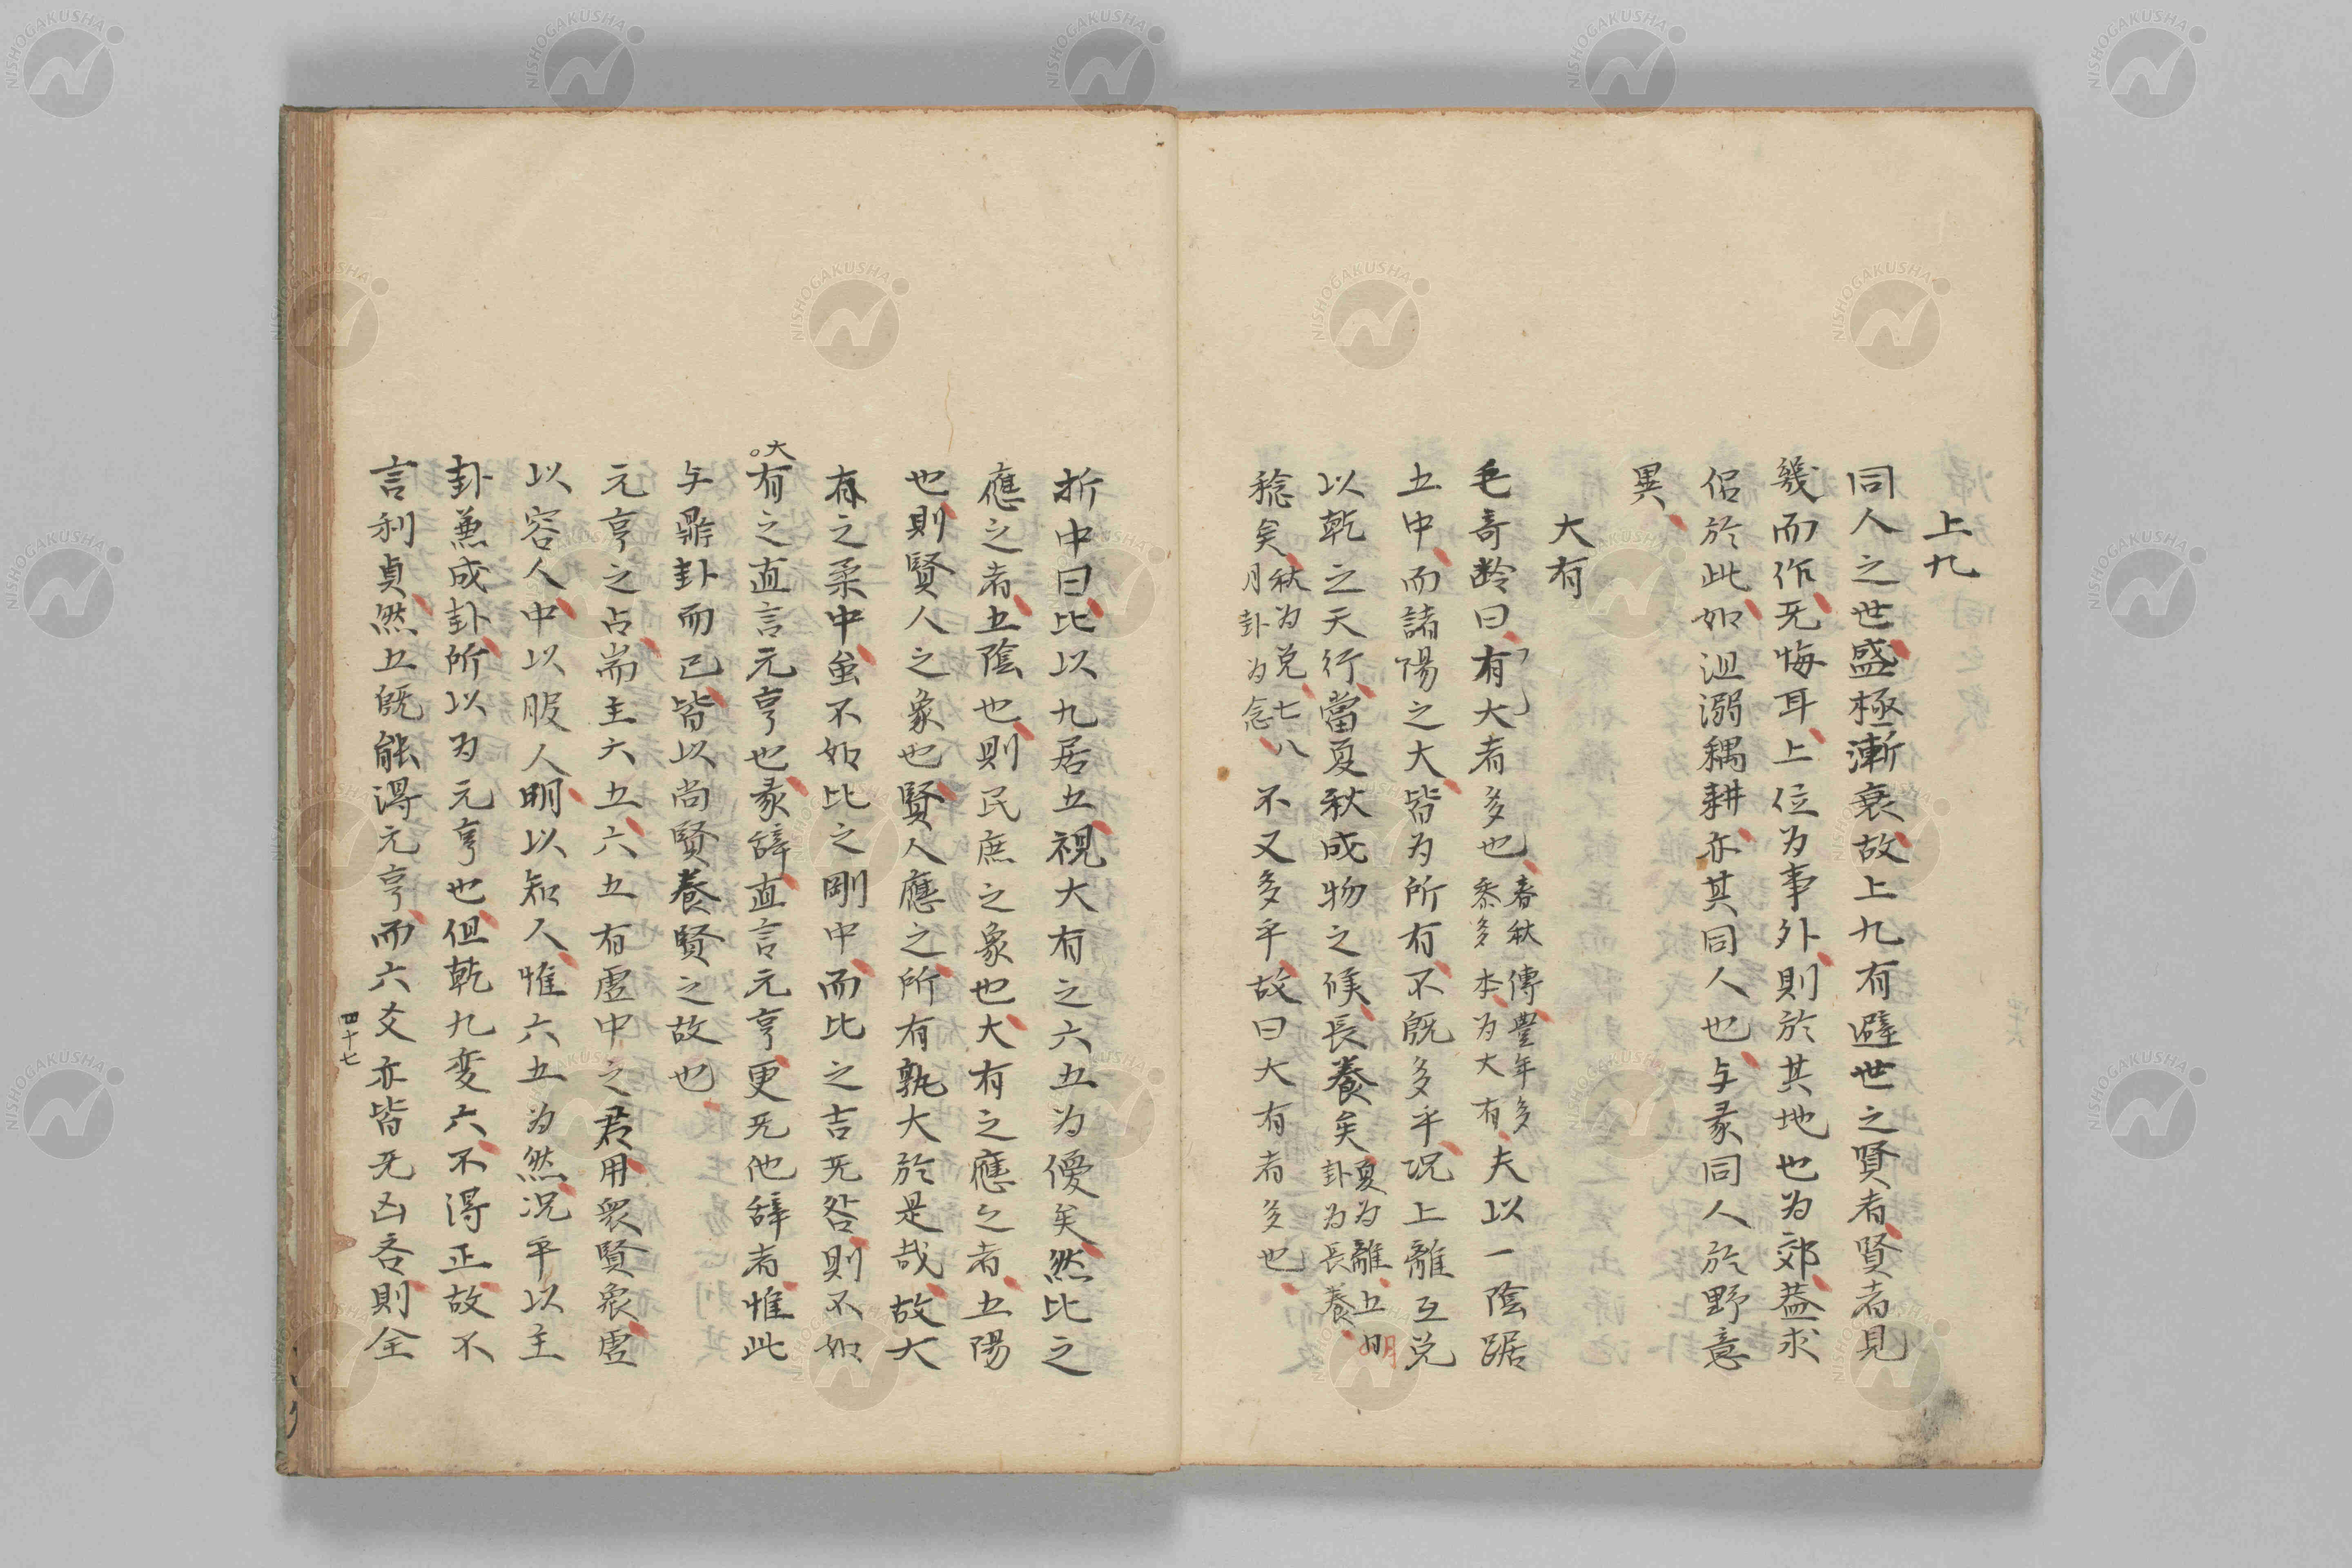 上九
同人之世盛極漸衰故上九有避世之賢者賢者見
幾而作无悔耳上位为事外則於其地也为郊蓋求
侶於此如沮溺耦耕亦其同人也与彖同人於野意
異
大有
毛奇齡曰有大者多也春秋傳豐年多黍多本为大有夫以一陰踞
五中而諸陽之大皆为所有不既多乎况上離互兌
以乾之天行當夏秋成物之候長養矣夏为離五明卦为長養
稔矣秋为兌七八月卦为念不又多乎故曰大有者多也
折中曰比以九居五視大有之六五为優矣然比之
應之者五陰也則民庶之象也大有之應之者五陽
也則賢人之象也賢人應之所有孰大於是哉故大
有之柔中虽不如比之剛中而比之吉无咎則不如
大有之直言元亨也彖辞直言元亨更无他辞者惟此
与鼎卦而已皆以尚賢養賢之故也
元亨之占耑主六五六五有虛中之君用衆賢衆虛
以容人中以服人明以知人惟六五为然况乎以主
卦兼成卦所以为元亨也但乾九変六不得正故不
言利貞然五既能得元亨而六爻亦皆无凶吝則全
四十七
NISHOGAKUSHA